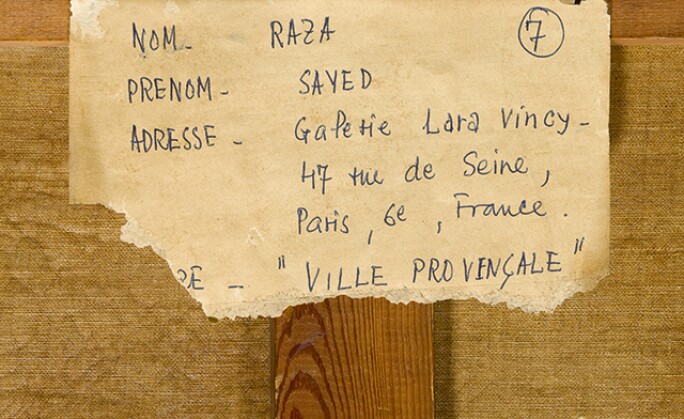 NOM - RAZA 7
PRENOM - SAYED
ADRESSE - Galerie Lara Vincy -
47 rue de Seine,
Paris, 6e, France.
RE - " VILLE PROVENÇALE "